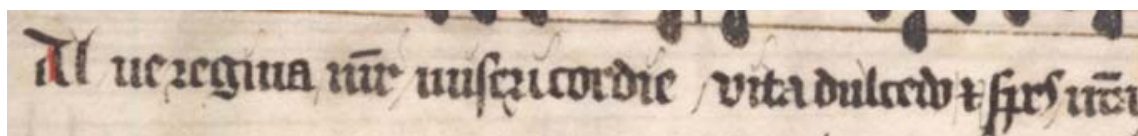 Al ue regina mr̄ misericordie vita dulcedo ⁊ spes nr̄a